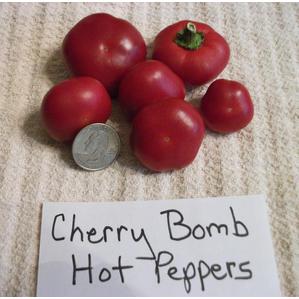 Cherry Bomb
Hot Peppers